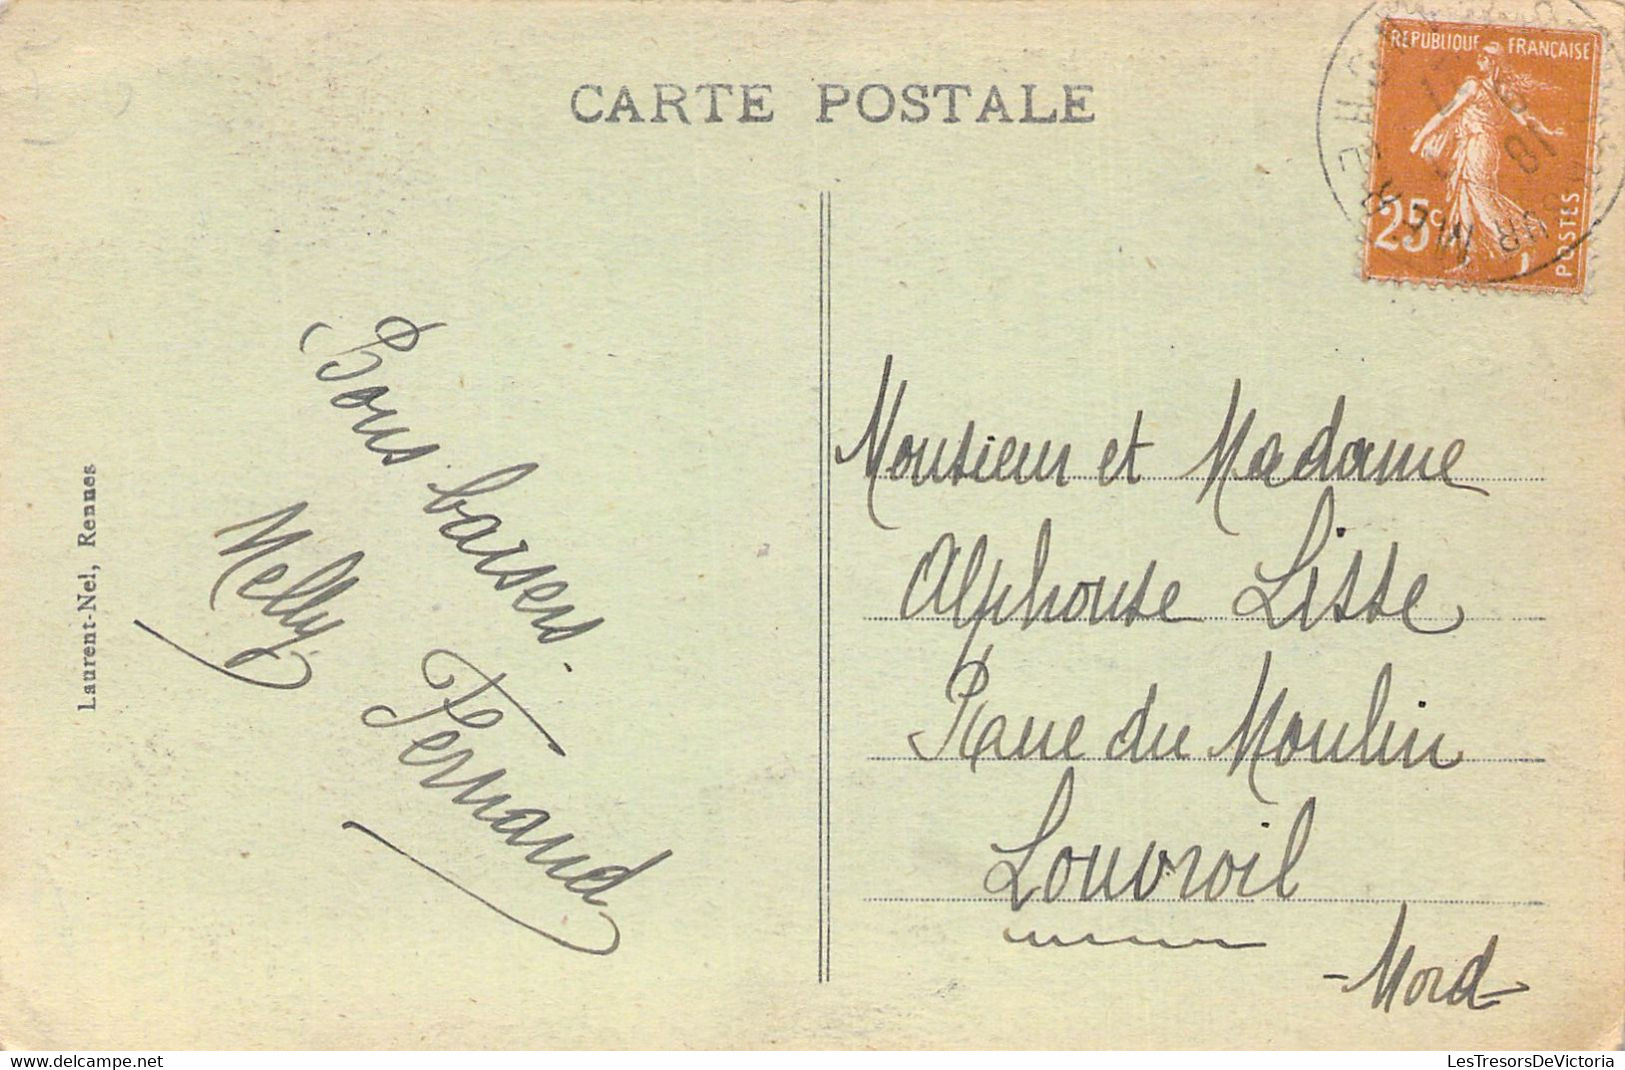 CARTE POSTALE
REPUBLIQUE FRANÇAISE
25c
POSTES
Bons baisers.
Nelly
Fernand
Laurent-Nel, Rennes
Monsieur et Madame
Alphonse Lisse
Rue du Moulin
Louvroil
-Nord-
delcampe.net
LesTresorsDeVictoria